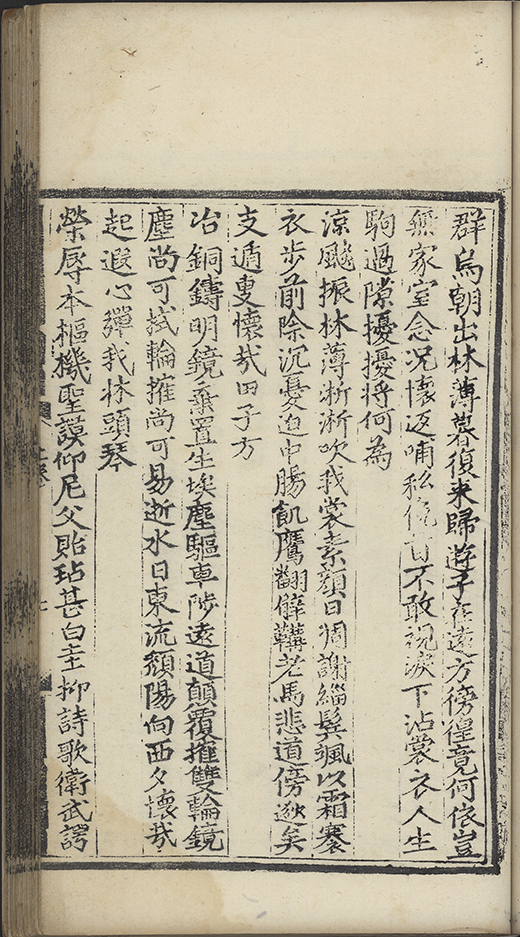 群烏朝出林薄暮復來歸遊子在遠方徬徨竟何依豈
無家室念況懷返哺私俛首不敢視淚下沾裳衣人生
駒過隙擾擾將何為
涼飈振林薄淅淅吹我裳素顏日凋謝緇鬂颯以霜褰
衣步前除沉憂迫中腸飢鷹翻僻鞲老馬悲道傍逖矣
支遁叟懷哉田子方
冶銅鑄明鏡棄置生埃塵驅車陟遠道顛覆摧雙輪鏡
塵尚可拭輪摧尚可易逝水日東流頹陽向西夕懷哉
起遐心彈我牀頭琴
榮辱本樞機聖謨仰尼父貽玷甚白圭抑詩歌衛武諤